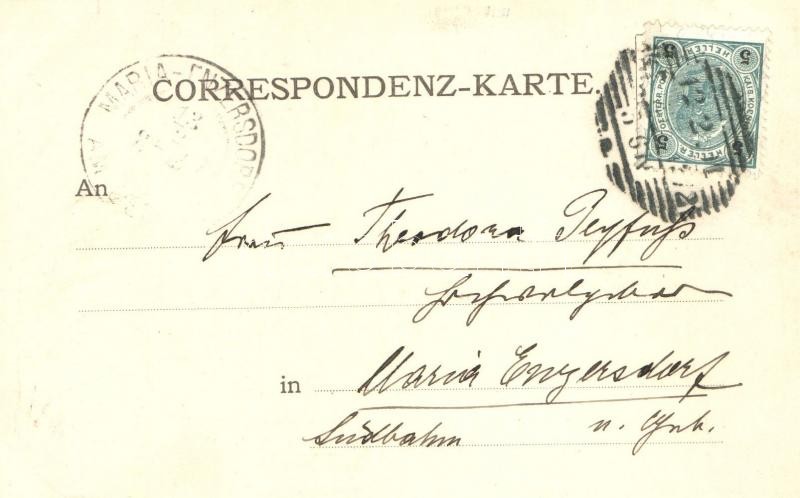 MARIA-ENZERSDORF
CORRESPONDENZ-KARTE.
5 HELLER 5
5 HELLER 5
An
Frau Theodora Peyfuß
in Maria Enzersdorf
Südbahn